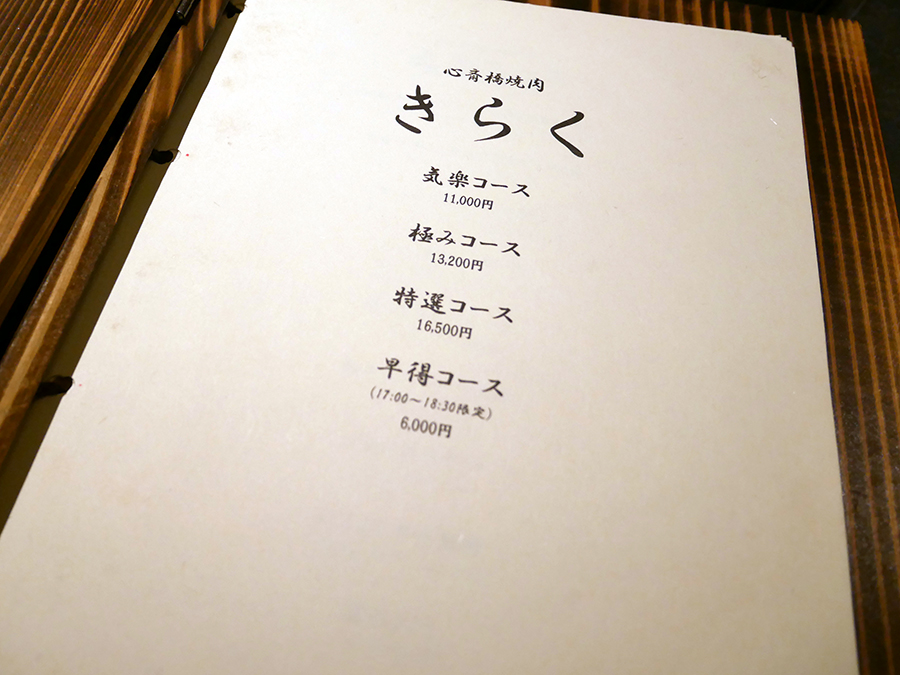 心斎橋焼肉
きらく
気楽コース
11,000円
極みコース
13,200円
特選コース
16,500円
早得コース
(17:00～18:30限定)
6,000円